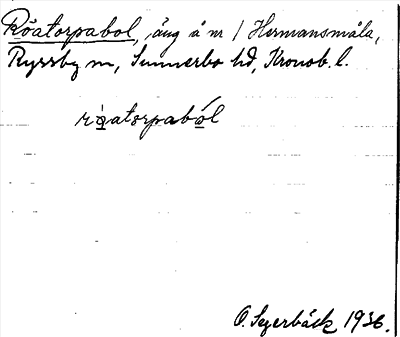 Röatorpabol, äng å nr 1 Hermansmåla,
Ryssby sn, Sunnerbo hd, Kronob. l.
röatorpaból
O. Segerbäck 1936.